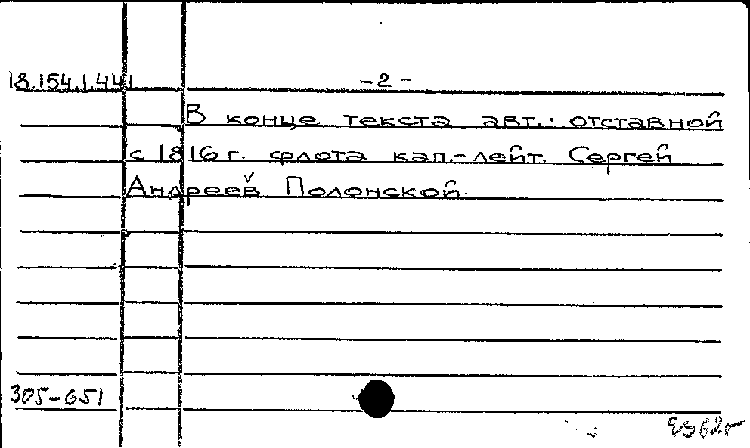 18.154.1.441 -2-
В конце текста авт.: отставной
с 1816 г. флота кап.-лейт. Сергей
Андреев Полонской.
305-651